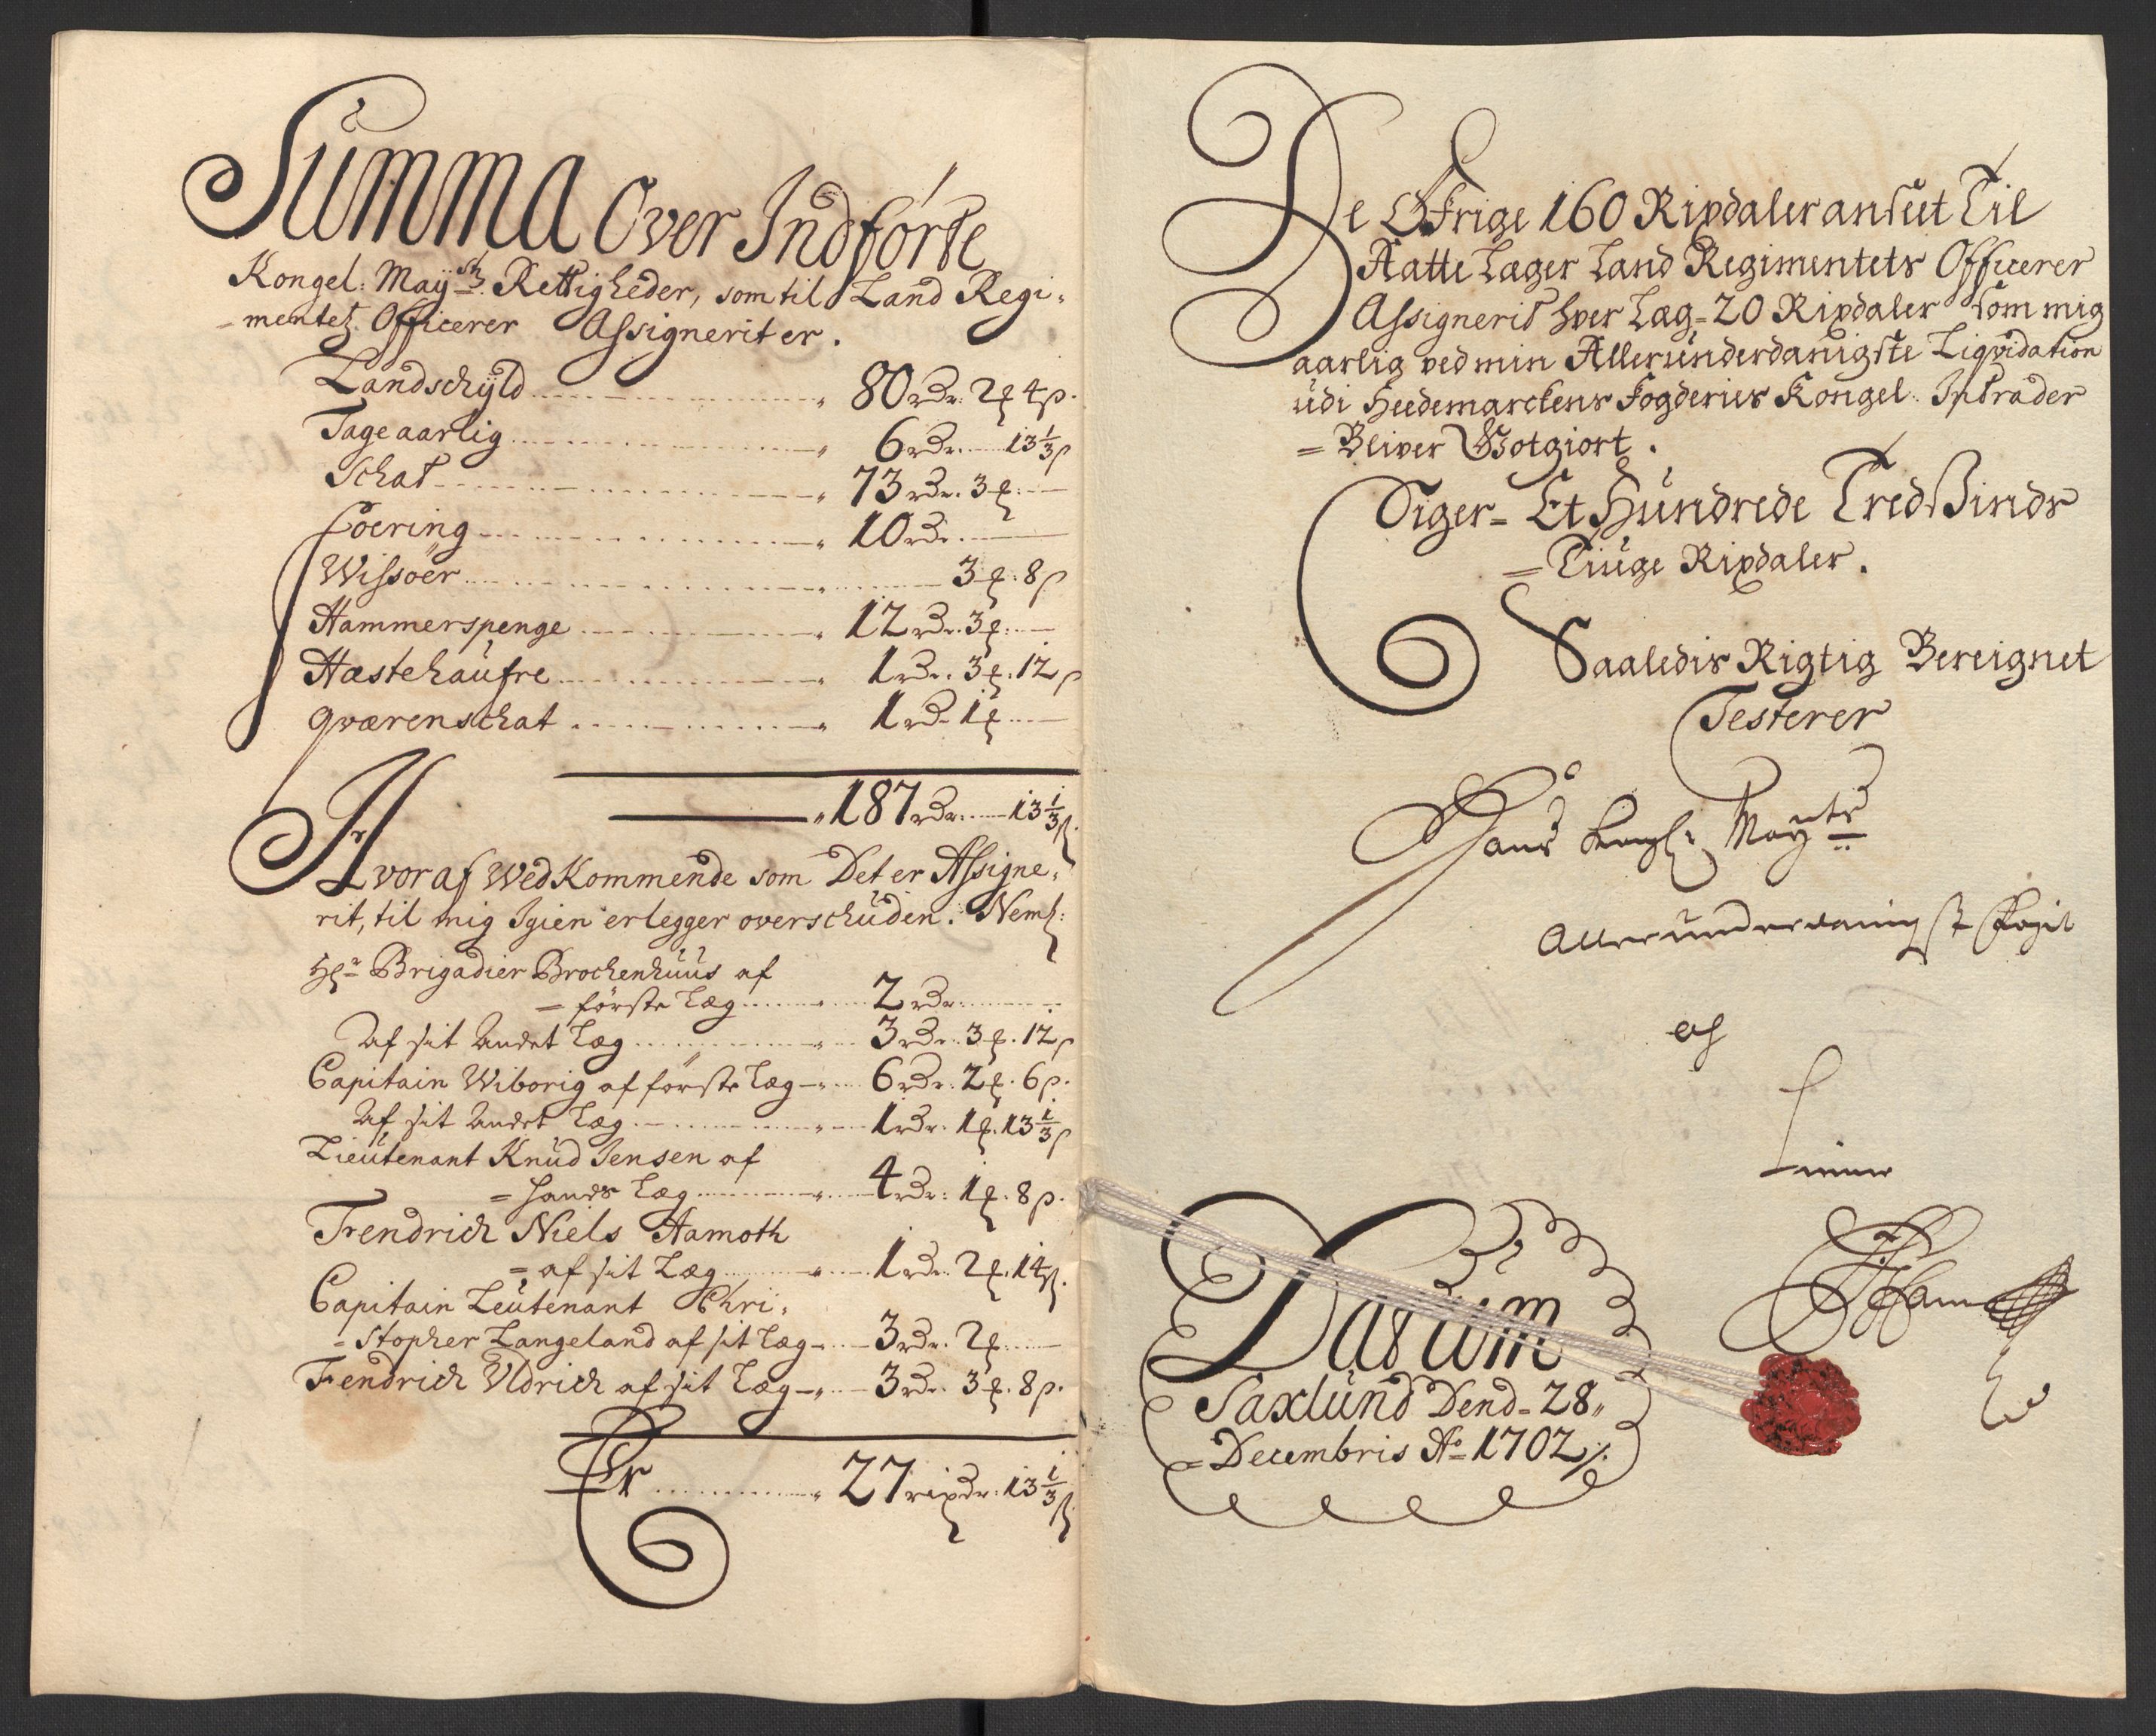 Summa Over Indförte
Kongel: Mayst: Rettigheder, som til Land Regi-
=mentetz Officerer Assignerit er.
Landschyld 80 rdr. 2 4 s.
Tageaarlig 6 rdr. 13 1/3 s
Schat 73 rdr. 3
Foering 10 rdr.
Wissöer 3 8 s
Hammerspenge 12 rdr. 3
Hæstehaufre 1 rdr. 3 12 s
Qværenschat 1 rd 1
187 rdr. 13 1/3 s.
Hvoraf WedKommende som Det er Assigne-
rit, til mig Igien erlegger overschuden. Neml:
Hr Brigadier Brochenhuus af
= förste Læg 2 rdr.
Af sit Andet Læg 3 rdr. 3 12 s
Capitain Wiborig af förste Læg 6 rdr. 2 6 s.
Af sit Andet Læg 1 rdr. 1 13 1/3 s
Lieutenant Knud Jensen af
= Hands Læg 4 rdr. 1 8 s.
Frendrich Niels Aamoth
= af sit Læg 1 rdr. 2 14 s.
Capitain Leutenant Chri-
= stopher Langeland af sit Læg 3 rdr. 2
Fendrich Uldrich af sit Læg 3 rdr. 3 8 s.
Er 27 rixdr. 13 1/3 s.
De Øfrige 160 Rixdaler anseet Til
Aatte Læger Land Regimentets Officerer
Assignerid hver Læg = 20 Rixdaler som mig
aarlig ved min Allerunderdanigste Liqvidation
udi Heedemarckens Fogderies Kongel. Intrader
= Bliver Gotgiort.
Siger = Et Hundrede Tredsinds
= Tiuge Rixdaler.
Saaledis Rigtig Bereignet
Testerer
Hans Kongl: Mayts
Allerunderdanigst Foget
og
Tienner
Datum
Saxlund Dend = 28.
= Decembris Ao 1702 /.